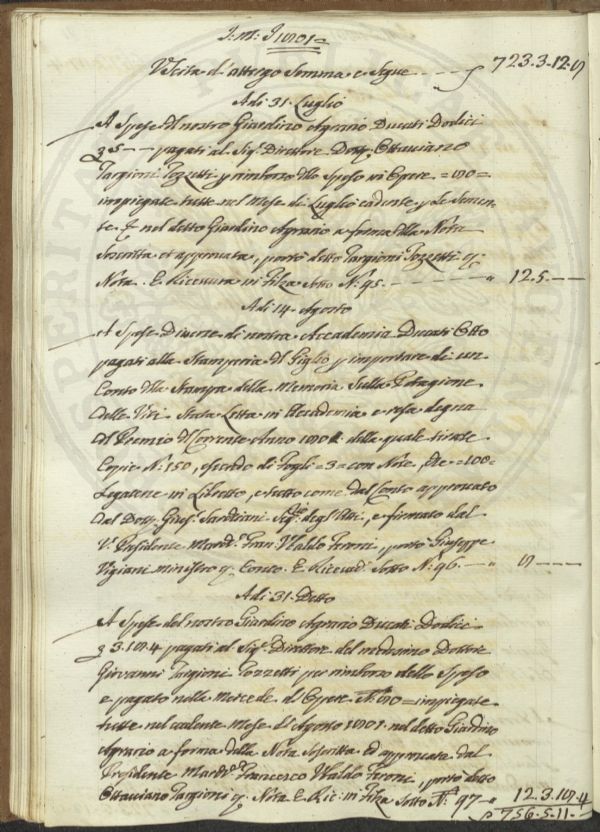 J: M: J 1801=
Uscita d'attergo Somma e Segue - - - - 723.3.12.8
A di 31. Luglio
A Spese del nostro Giardino Agrario Ducati Dodici
5 - - pagati al Sig.e Direttore Dott. Ottaviano
Targioni Tozzetti p rimborso delle Spese in Opere = 80 =
impiegate tutte nel Mese di Luglio cadente, e le Semen-
te nel detto Giardino Agrario a forma della Nota
Soscritta et approvata, portò detto Targioni Tozzetti
Nota. E Ricevuta in Filza Sotto N: 95. - - - - " 12.5. - -
A di 14. Agosto
A Spese Diverse di nostra Accademia Ducati Otto
pagati alla Stamperia del Giglio p importare di un
Conto della Stampa della Memoria Sulla Potagione
delle Viti Stata Letta in Accademia e resa degna
del Premio del Corrente Anno 1801. della quale tirate
Copie N: 150, essendo di Fogli = 3 = con Note, de = 100 =
Legature in Libretto, e tutto come dal Conto approvato
dal Dott. Gius.e Sarchiani Seg.rio degl'Atti, e firmato dal
V. Presidente March.e Fran. Ubaldo Feroni, portò Giuseppe
Viziani Ministro Conto. E Ricevuta Sotto N: 96. - - " 8 - - -
A di 31. Detto
A Spese del nostro Giardino Agrario Ducati Dodici
3.18.4 pagati al Sig.e Direttore del medesimo Dottore
Giovanni Targioni Tozzetti per rimborso delle Spese
e pagato nella Mercede d'Opere N: 80 = impiegate
tutte nel cadente Mese d'Agosto 1801. nel detto Giardino
Agrario a forma della Nota Soscritta ed approvata dal
Presidente March.e Francesco Ubaldo Feroni, portò detto
Ottaviano Targioni Nota E Ric: in Filza Sotto N: 97 - " 12.3.18.4
756.5.11. -